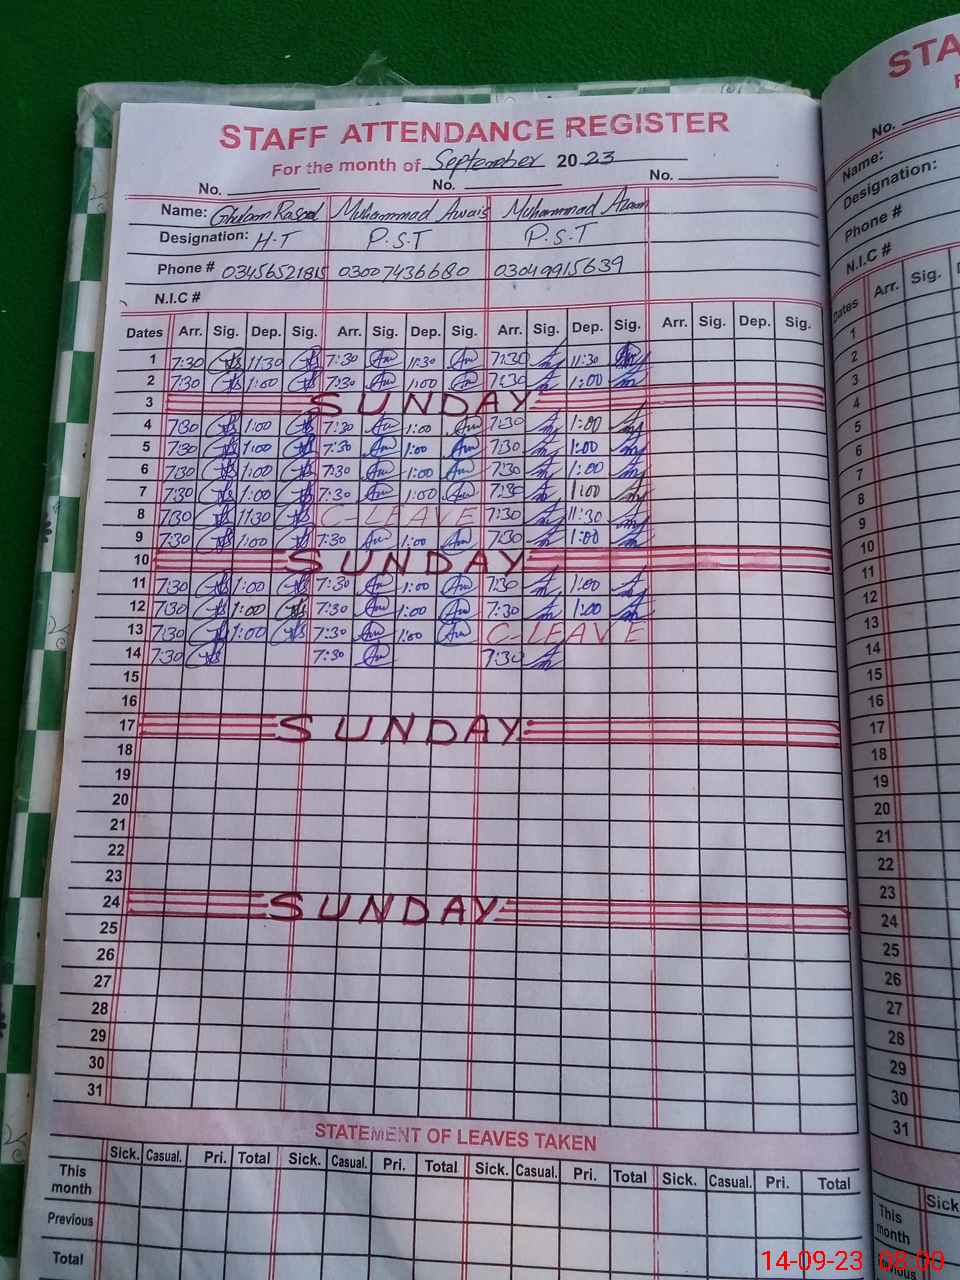 STAFF ATTENDANCE REGISTER
For the month of September 2023
No. No. No.
Name: Ghulam Rasool Muhammad Awais Muhammad Azam
Designation: H.T P.S.T P.S.T
Phone # 03456521815 03007436680 03049915639
N.I.C #
Dates Arr. Sig. Dep. Sig. Arr. Sig. Dep. Sig. Arr. Sig. Dep. Sig. Arr. Sig. Dep. Sig.
1 7:30 11:30 7:30 11:30 7:30 11:30
2 7:30 1:00 7:30 1:00 7:30 1:00
3 SUNDAY
4 7:30 1:00 7:30 1:00 7:30 1:00
5 7:30 1:00 7:30 1:00 7:30 1:00
6 7:30 1:00 7:30 1:00 7:30 1:00
7 7:30 1:00 7:30 1:00 7:30 1:00
8 7:30 11:30 C-LEAVE 7:30 11:30
9 7:30 1:00 7:30 1:00 7:30 1:00
10 SUNDAY
11 7:30 1:00 7:30 1:00 7:30 1:00
12 7:30 1:00 7:30 1:00 7:30 1:00
13 7:30 1:00 7:30 1:00 C-LEAVE
14 7:30 7:30 7:30
15
16
17 SUNDAY
18
19
20
21
22
23
24 SUNDAY
25
26
27
28
29
30
31
STATEMENT OF LEAVES TAKEN
Sick. Casual. Pri. Total Sick. Casual. Pri. Total Sick. Casual. Pri. Total Sick. Casual. Pri. Total
This
month
Previous
Total
STA
No.
Name:
Designation:
Phone #
N.I.C #
Dates Arr. Sig.
1
2
3
4
5
6
7
8
9
10
11
12
13
14
15
16
17
18
19
20
21
22
23
24
25
26
27
28
29
30
31
Sick
This
month
14-09-23 08:00